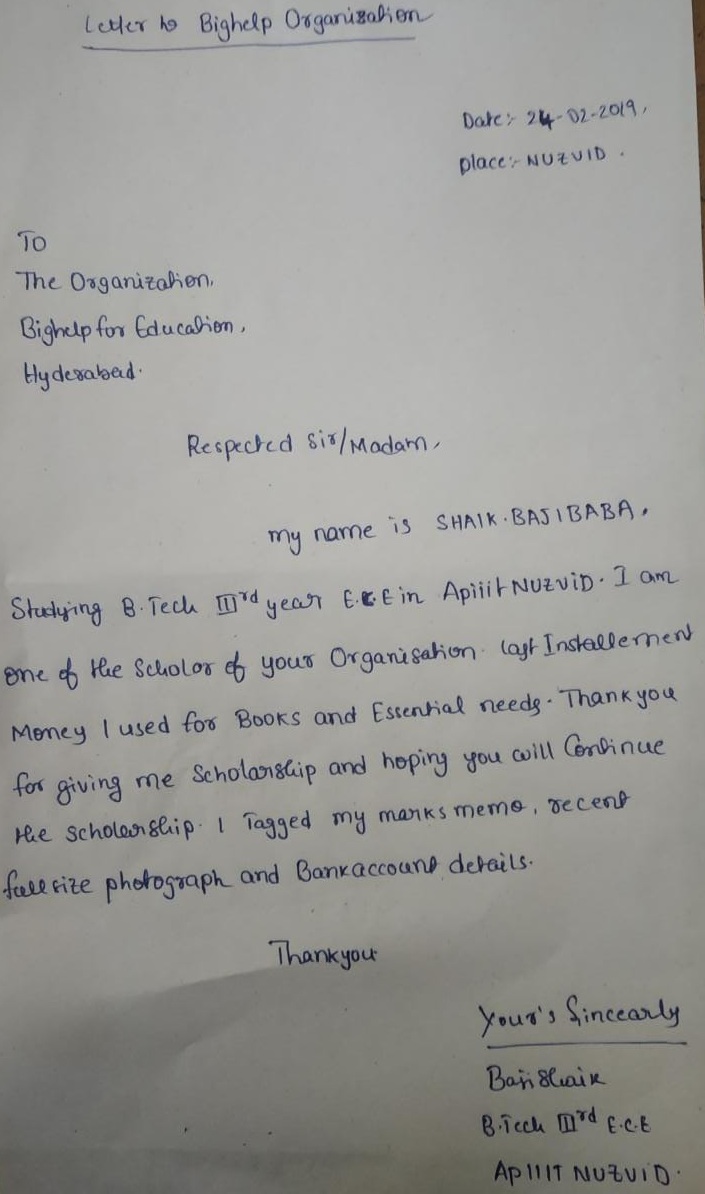 Letter to Bighelp Organization
Date:- 24-02-2019,
place:- NUZVID.
TO
The Organization,
Bighelp for Education,
Hyderabad.
Respected Sir/Madam,
my name is SHAIK.BAJIBABA,
Studying B.Tech IIIrd year E.C.E in Apiiit NUZVID. I am
one of the Scholor of your Organisation. last Installement
Money I used for Books and Essential needs. Thankyou
for giving me Scholarship and hoping you will Continue
the scholarship. I Tagged my marks memo, recent
fullsize photograph and Bankaccount details.
Thankyou
Your's Sincearly
Baji Shaik
B.Tech IIIrd E.C.E
AP IIIT NUZVID.